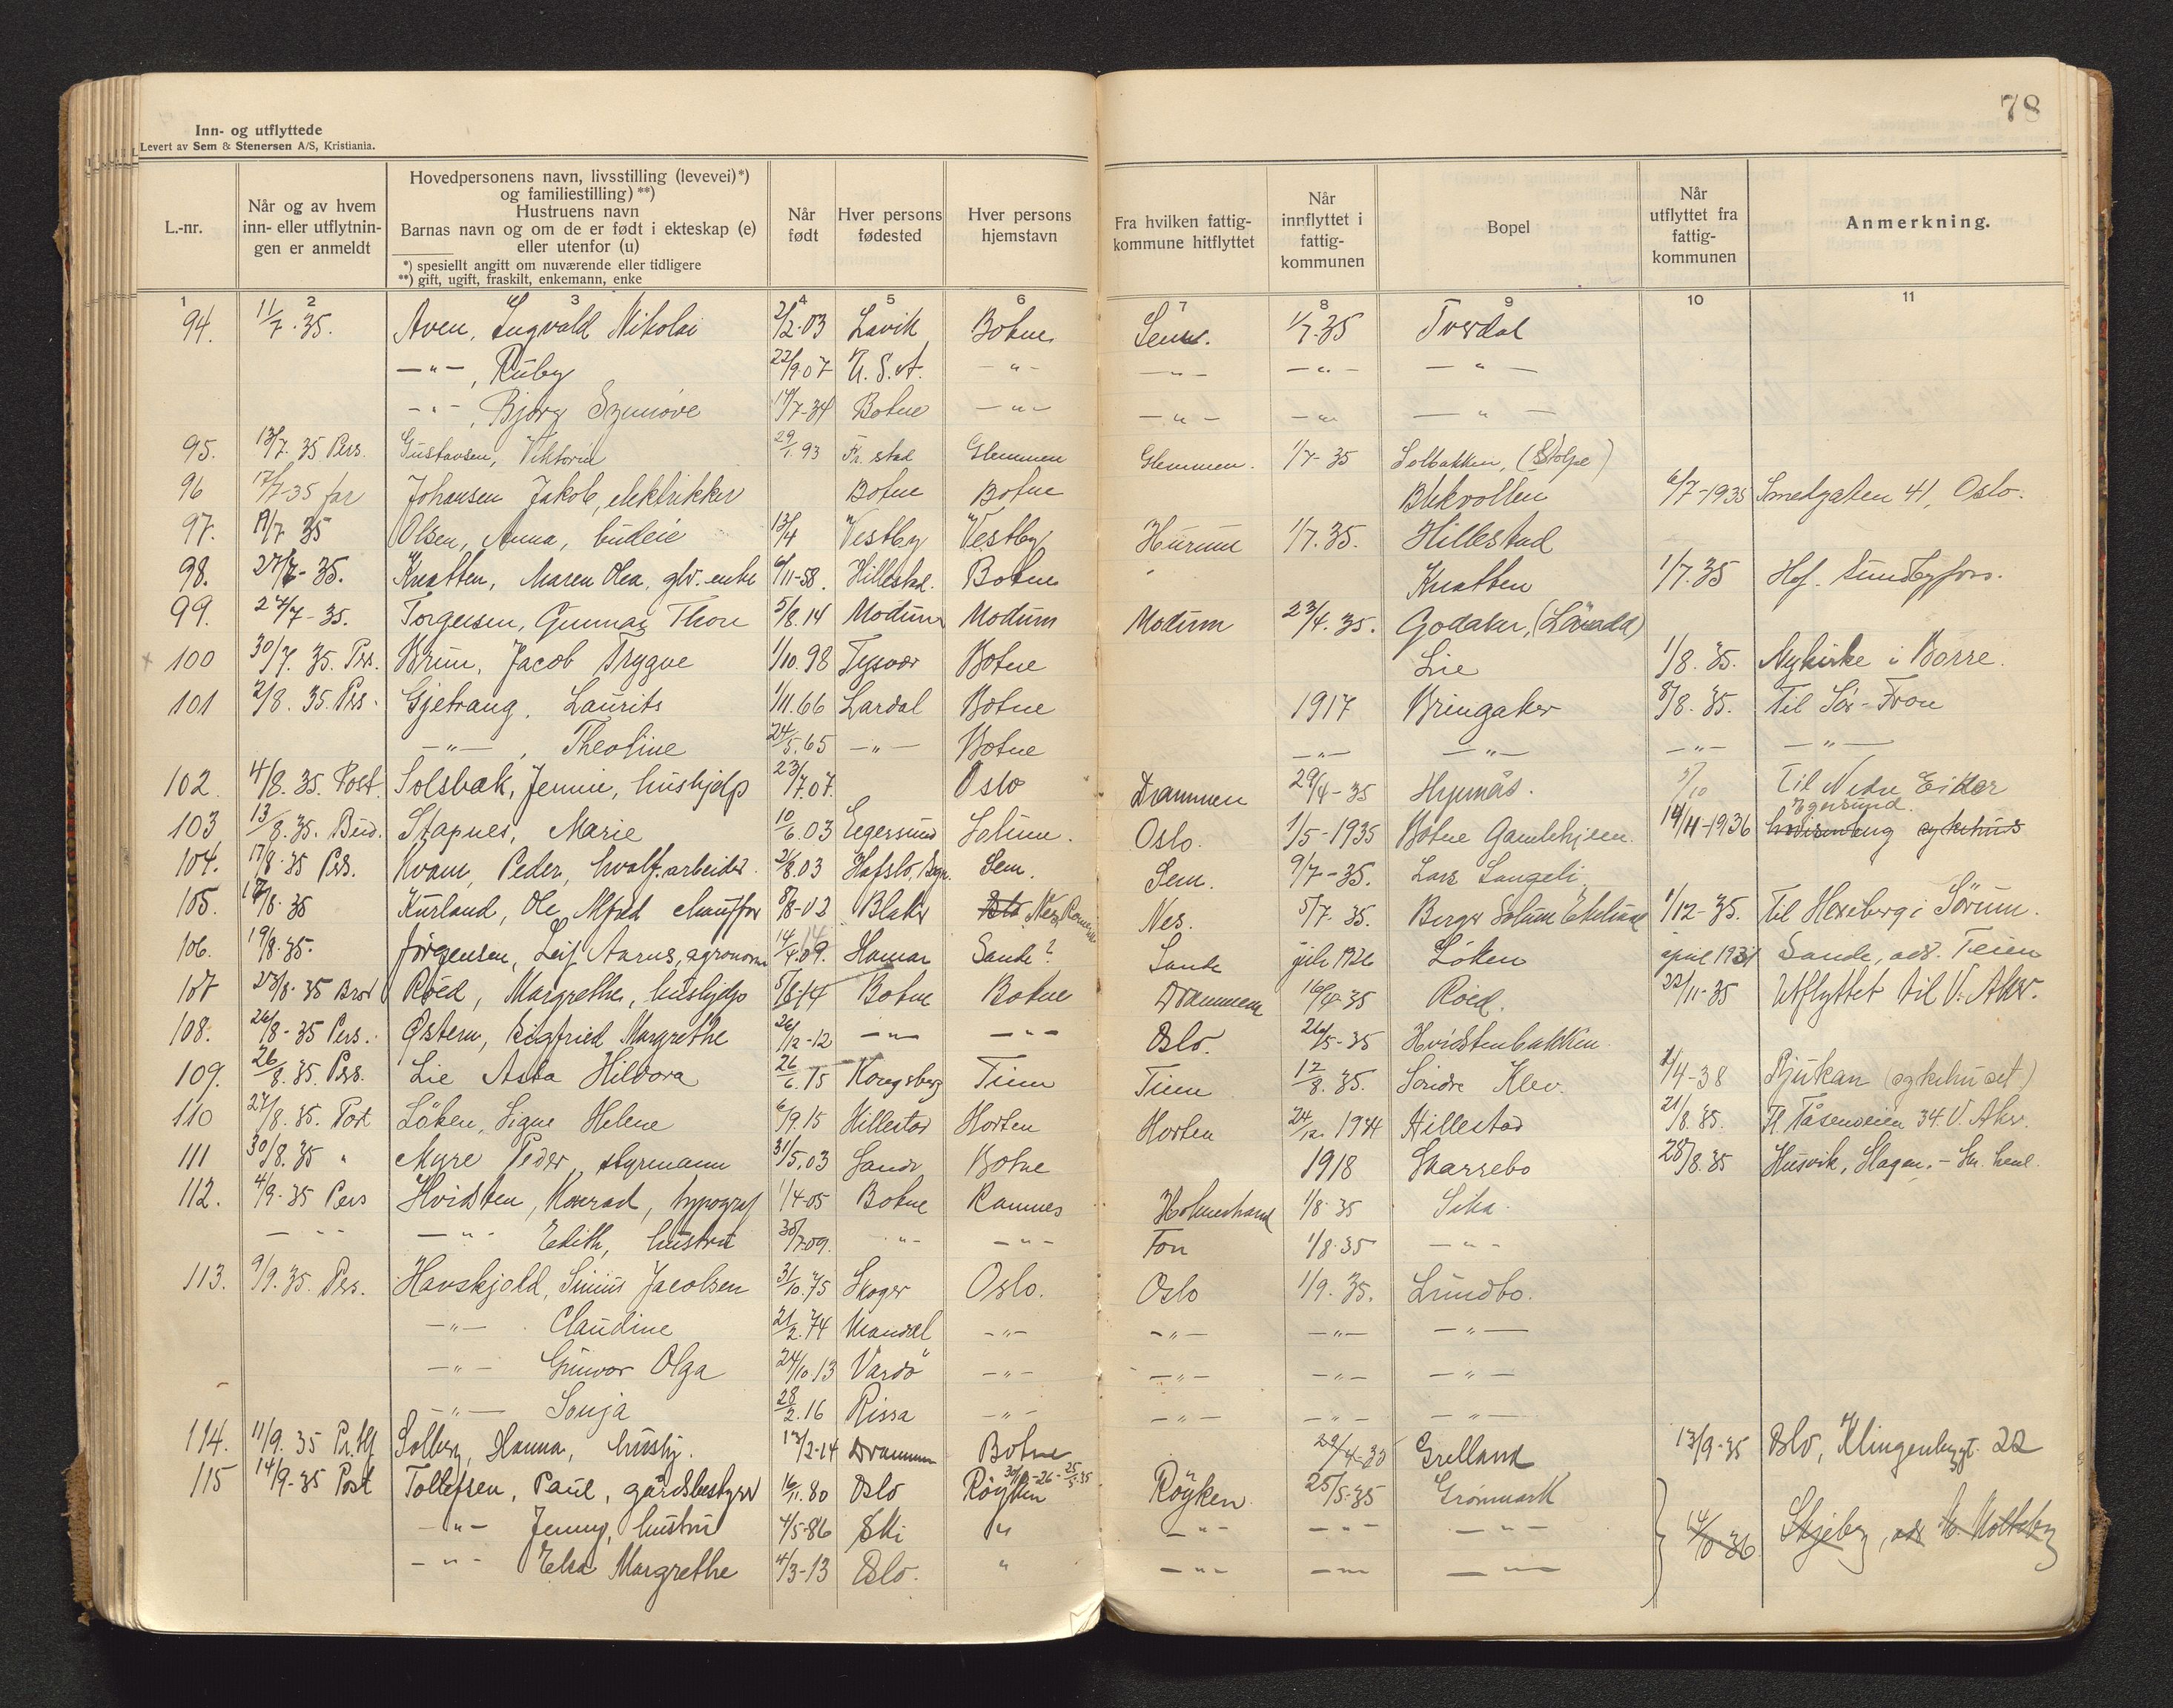 78
Inn- og utflyttede
Levert av Sem & Stenersen A/S, Kristiania.
L.-nr.
Når og av hvem
inn- eller utflytnin-
gen er anmeldt
Hovedpersonens navn, livsstilling (levevei)*)
og familiestilling) **)
Hustruens navn
Barnas navn og om de er født i ekteskap (e)
eller utenfor (u)
*) spesiellt angitt om nuværende eller tidligere
**) gift, ugift, fraskilt, enkemann, enke
Når
født
Hver persons
fødested
Hver persons
hjemstavn
Fra hvilken fattig-
kommune hitflyttet
Når
innflyttet i
fattig-
kommunen
Bopel
Når
utflyttet fra
fattig-
kommunen
Anmerkning.
1 2 3 4 5 6 7 8 9 10 11
94. 11/7.35. Aven, Ingvald Nikolai 2/2.03 Lavik Botne Sem. 1/7.35 Tverdal
—"—, Ruby 22/9 07 U.S.A. —"— —"— —"— —"—
—"—, Bjørg Synnøve 14/7-34 Botne —"— —"— —"— —"—
95. 13/7.35 Pers. Gustavsen, Viktoria 29/1.93 Fr.stad Glemmen Glemmen. 1/7-35 Solbakken, (Stolpe)
96 17/7-35 far Johansen Jakob, elektrikker Botne Botne Blekvollen 6/7-1935 Smedgaten 41, Oslo.
97. 19/7 35 Olsen, Anna, budeie 13/4 Vestby Vestby Hurum 1/7.35. Hillestad
98. 27/7-35. Knatten, Maren Olea, glv. enke 6/11-58. Hillestad. Botne Knatten 1/7.35 Hof. Sundbyfoss.
99. 27/7-35. Torgersen, Gunnar Thore 5/8.14 Modum Modum Modum 23/4.35. Godaker,
100 30/7.35. Pers. Brun, Jacob Trygve 1/10.98 Tysvær Botne Lie 1/8.35. Nykirke i Borre.
101 2/8.35. Pers. Gjetrang, Laurits 1/11.66 Lardal Botne 1917 Bringaker 8/8.35. Til Sör-Fron
—"—, Theoline 24/5.65 —"— Botne —"— —"— —"— —"—
102. 4/8.35. Post. Solsbak, Jennie, hushjelp 23/7.07. Oslo Drammen 29/4-35 5/10 Til Nedre Eiker
103 13/8.35. Bud. Stapnes, Marie 10/6.03 Egersund Solum. Oslo. 1/5-1935 Botne Gamlehjem. 14/11-1936 Egersund. sykehus
104. 17/8.35 Pers. Kvam, Peder, hvalf.arbeider. 2/8.03 Hafslo, Sem. Sem. 9/7-35. Lars Langeli
105. 17/8.35 Kurland, Ole Alfred chauffør 8/8-03 Blaker Nes, Romerike Nes. 5/7.35. Berger Solum 1/12-35. Til Hexeberg i Sörum.
106. 19/8.35. Jörgensen, Leif Aarus, agronom 14/4.09. Hamar Sande? Sande juli 1926 Löken april 1931 Sande, adr. Teien
107 23/8.35 Brev Röed, Margrethe, hushjelp 5/8-14 Botne Botne Drammen 16/4-35 Röed. 22/11-35 Utflyttet til V. Aker.
108. 26/8-35 Pers. Østern, Sigfried Margrethe 26/12-12 —"— —"— Oslo. 26/5-35 Hvidstenbakken
109. 26/8.35. Pers. Lie Asta Hildora 26/6.15 Kongsberg Tinn Tinn 12/8.35. Söndre Klev. 1/4-38 Rjukan (sykehuset)
110 27/8.35. Post Löken, Signe Helene 6/9.15 Hillestad Horten Horten 24/12. 1934 Hillestad 21/8.35. Fl. Tåsenveien 34. V. Aker.
111 30/8.35 " Myre Peder, styrmann 31/5.03 Sande Botne 1918 Skarrebo 28/8.35 Husvik, Slagen.
112. 4/9-35 Pers Hvidsten, Konrad, typograf 1/4-05 Botne Ramnes Holmestrand 1/8.35 Sika.
—"— Edith, hustru 30/7.09. —"— —"— Fon 1/8.35 —"—
113. 9/9.35. Pers. Havskjold, Simus Jacobsen 31/10.75 Skoger Oslo. Oslo 1/9.35. Lundbo.
—"— Claudine 21/2.74 Mandal —"— —"— —"— —"—
—"— Gunvor Olga 24/10.13 Vardö —"— —"— —"— —"—
—"— Sonja 28/2.16 Rissa —"— —"— —"— —"—
114. 11/9.35 Solberg, Hanna, hushj. 13/2-14 Drammen Botne 29/4-35 Grelland 13/9-35 Oslo, Klingenbggt. 22
115 14/9-35 Post Tollefsen, Paul, gårdsbestyrer 16/11.80 Oslo Röyken Röyken. 25/5-35 Grönmark
—"— Jenny, hustru 4/5-86 Ski " —"— —"— —"— 14/10 36 Skjeberg, adr
—"— Elsa Margrethe 4/3-13 Oslo. " —"— —"— —"—